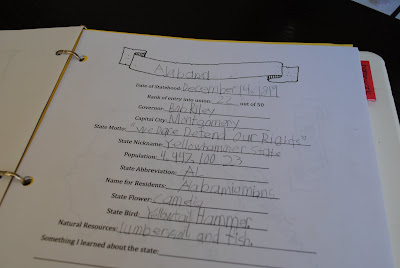 Alabama
Date of Statehood: December 14, 1919
Rank of entry into union: 22 out of 50
Governor: Bob Riley
Capital City: Montgomery
State Motto: "We Dare Defend Our Rights"
State Nickname: Yellowhammer State
Population: 4,447,100 23
State Abbreviation: Al
Name for Residents:
State Flower:
State Bird: Hammer
Natural Resources: and fish
Something I learned about the state: